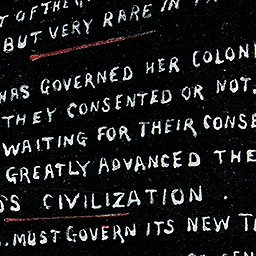 T OF THE
BUT VERY RARE IN
HAS GOVERNED HER COLONI
THEY CONSENTED OR NOT.
WAITING FOR THEIR CONSE
GREATLY ADVANCED THE
D'S CIVILIZATION .
MUST GOVERN ITS NEW T